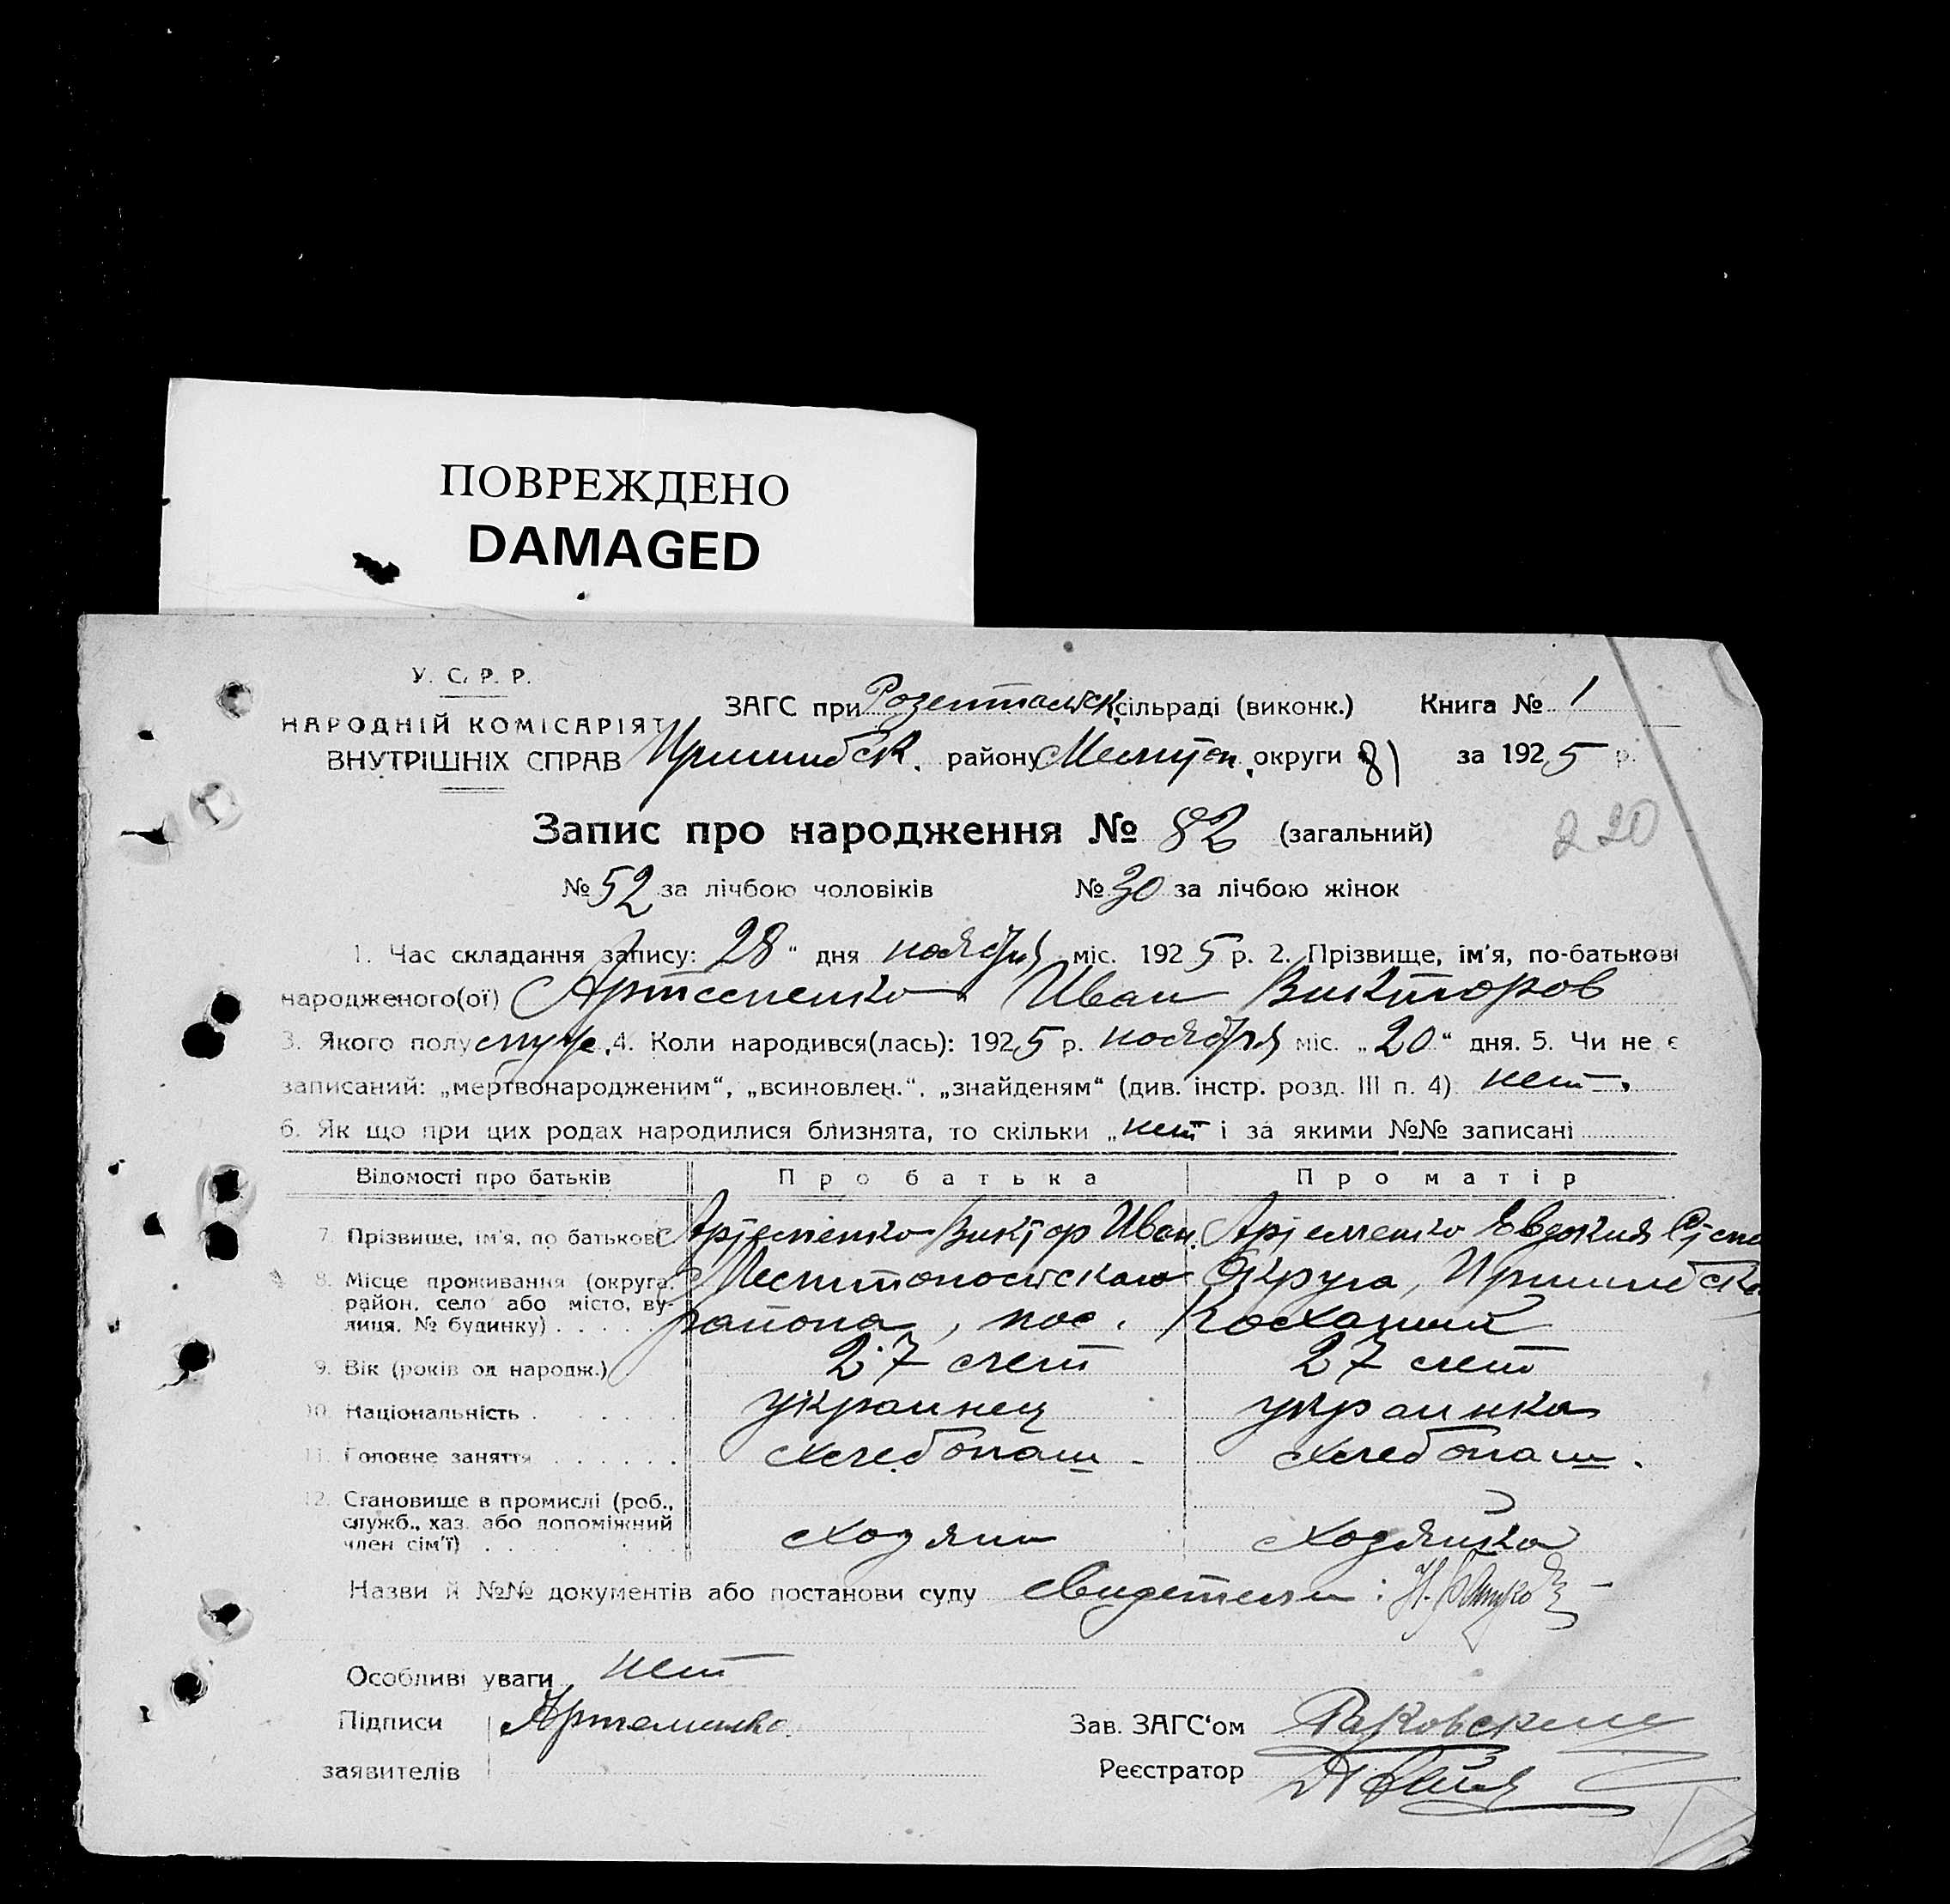 ПОВРЕЖДЕНО
DAMAGED
У. С. Р. Р.
НАРОДНІЙ КОМІСАРІЯТ
ВНУТРІШНІХ СПРАВ
ЗАГС при Розентальск. сільраді (виконк.) Книга № 1
Пришибск. району Мелитоп. округи за 1925 р.
Запис про народження № 82 (загальний)
220
№ 52 за лічбою чоловіків № 30 за лічбою жінок
1. Час складання запису: 28 " дня ноября міс. 1925 р. 2. Прізвище, ім'я, по-батькові
народженого(ої) Артеменко Иван Викторов
3. Якого полу муж. 4. Коли народився(лась): 1925 р. ноября міс. „20" дня. 5. Чи не є
записаний: „мертвонародженим", „всиновлен.", „знайденям" (див. інстр. розд. III п. 4) нет.
6. Як що при цих родах народилися близнята, то скільки „нет і за якими №№ записані
Відомості про батьків Про батька Про матір
7. Прізвище, ім'я, по батькові Артеменко Виктор Иван. Артеменко Евдокия
8. Місце проживання (округа, район, село або місто, ву-
лиця, № будинку) Мелитопольская Округа, Пришибского
района, пос.
9. Вік (років од народж.) 27 лет 27 лет
10. Національність украинец украинка
11. Головне заняття хлебопаш. хлебопаш.
12. Становище в промислі (роб.,
служб., хаз. або допоміжний
член сім'ї) хозяин хозяйка
Назви й №№ документів або постанови суду свидетели:
Особливі уваги нет
Підписи Артеменко Зав. ЗАГС'ом Раковский
заявителів Реєстратор